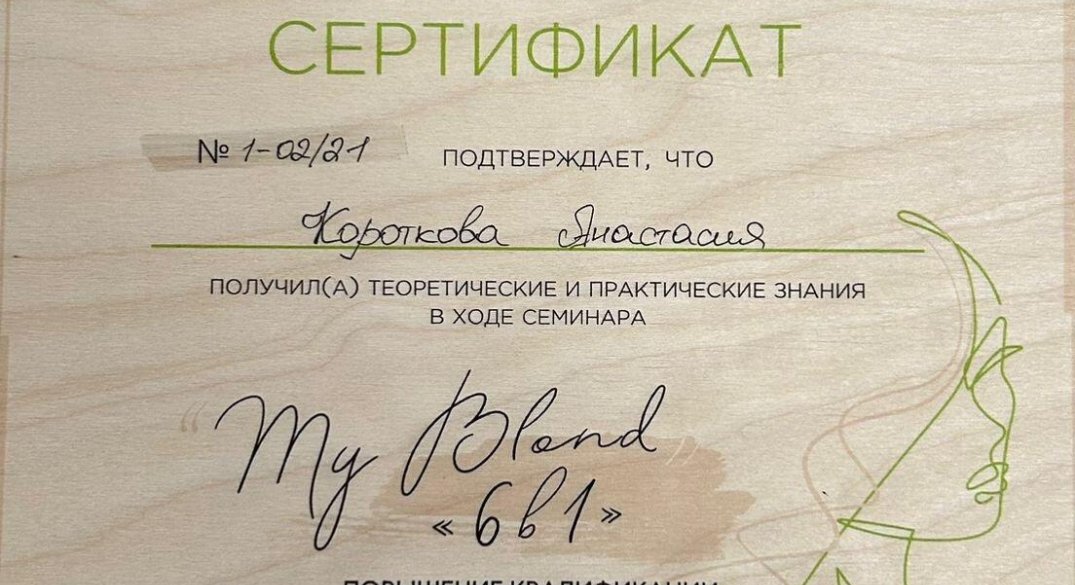 СЕРТИФИКАТ
№ 1-02/21 ПОДТВЕРЖДАЕТ, ЧТО
Короткова Анастасия
ПОЛУЧИЛ(А) ТЕОРЕТИЧЕСКИЕ И ПРАКТИЧЕСКИЕ ЗНАНИЯ
В ХОДЕ СЕМИНАРА
“My Blond”
«6в1»
ПОВЫШЕНИЕ КВАЛИФИКАЦИИ